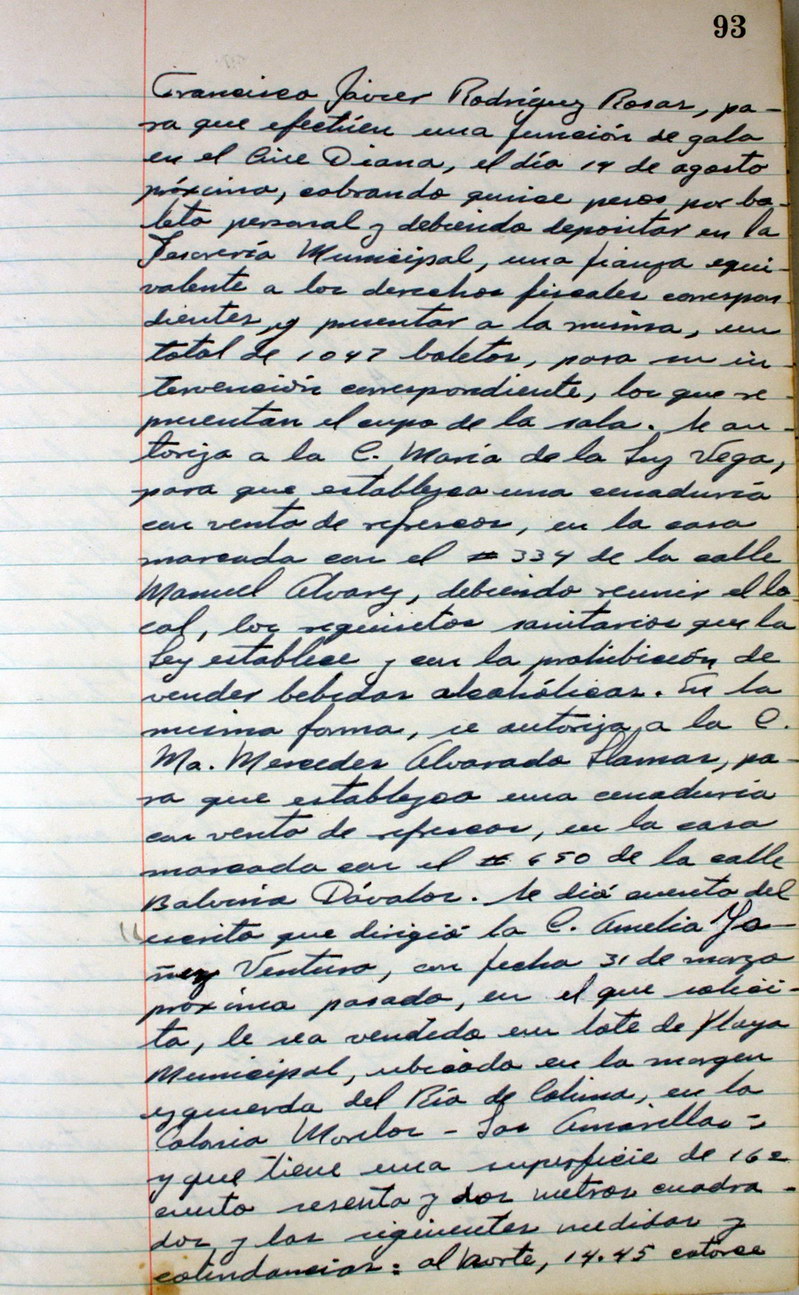 93
Francisco Javier Rodríguez Rosas, pa-
ra que efectúen una función de gala
en el Cine Diana, el día 14 de agosto
próximo, cobrando quince pesos por bo-
leto personal y debiendo depositar en la
Tesorería Municipal, una fianza equi-
valente a los derechos fiscales correspon
dientes, y presentar a la misma, un
total de 1047 boletos, para su in-
tervención correspondiente, los que re-
presentan el cupo de la sala. Se au-
toriza a la C. María de la Luz Vega,
para que establezca una cenaduría
con venta de refrescos, en la casa
marcada con el # 334 de la calle
Manuel Alvarez, debiendo reunir el lo-
cal, los requisitos sanitarios que la
Ley establece y con la prohibición de
vender bebidas alcohólicas. En la
misma forma, se autoriza a la C.
Ma. Mercedes Alvarado Llamas, pa-
ra que establezca una cenaduría
con venta de refrescos, en la casa
marcada con el # 650 de la calle
Balvina Dávalos. Se dió cuenta del
escrito que dirigió la C. Amelia Ya-
ñez Ventura, con fecha 31 de marzo
próximo pasado, en el que solici-
ta, le sea vendido un lote de Playa
Municipal, ubicado en la margen
izquierda del Río de Colima, en la
Colonia Morelos - Los Amarillos -,
y que tiene una superficie de 162
ciento sesenta y dos metros cuadra-
dos y las siguientes medidas y
colindancias: al Norte, 14.45 catorce